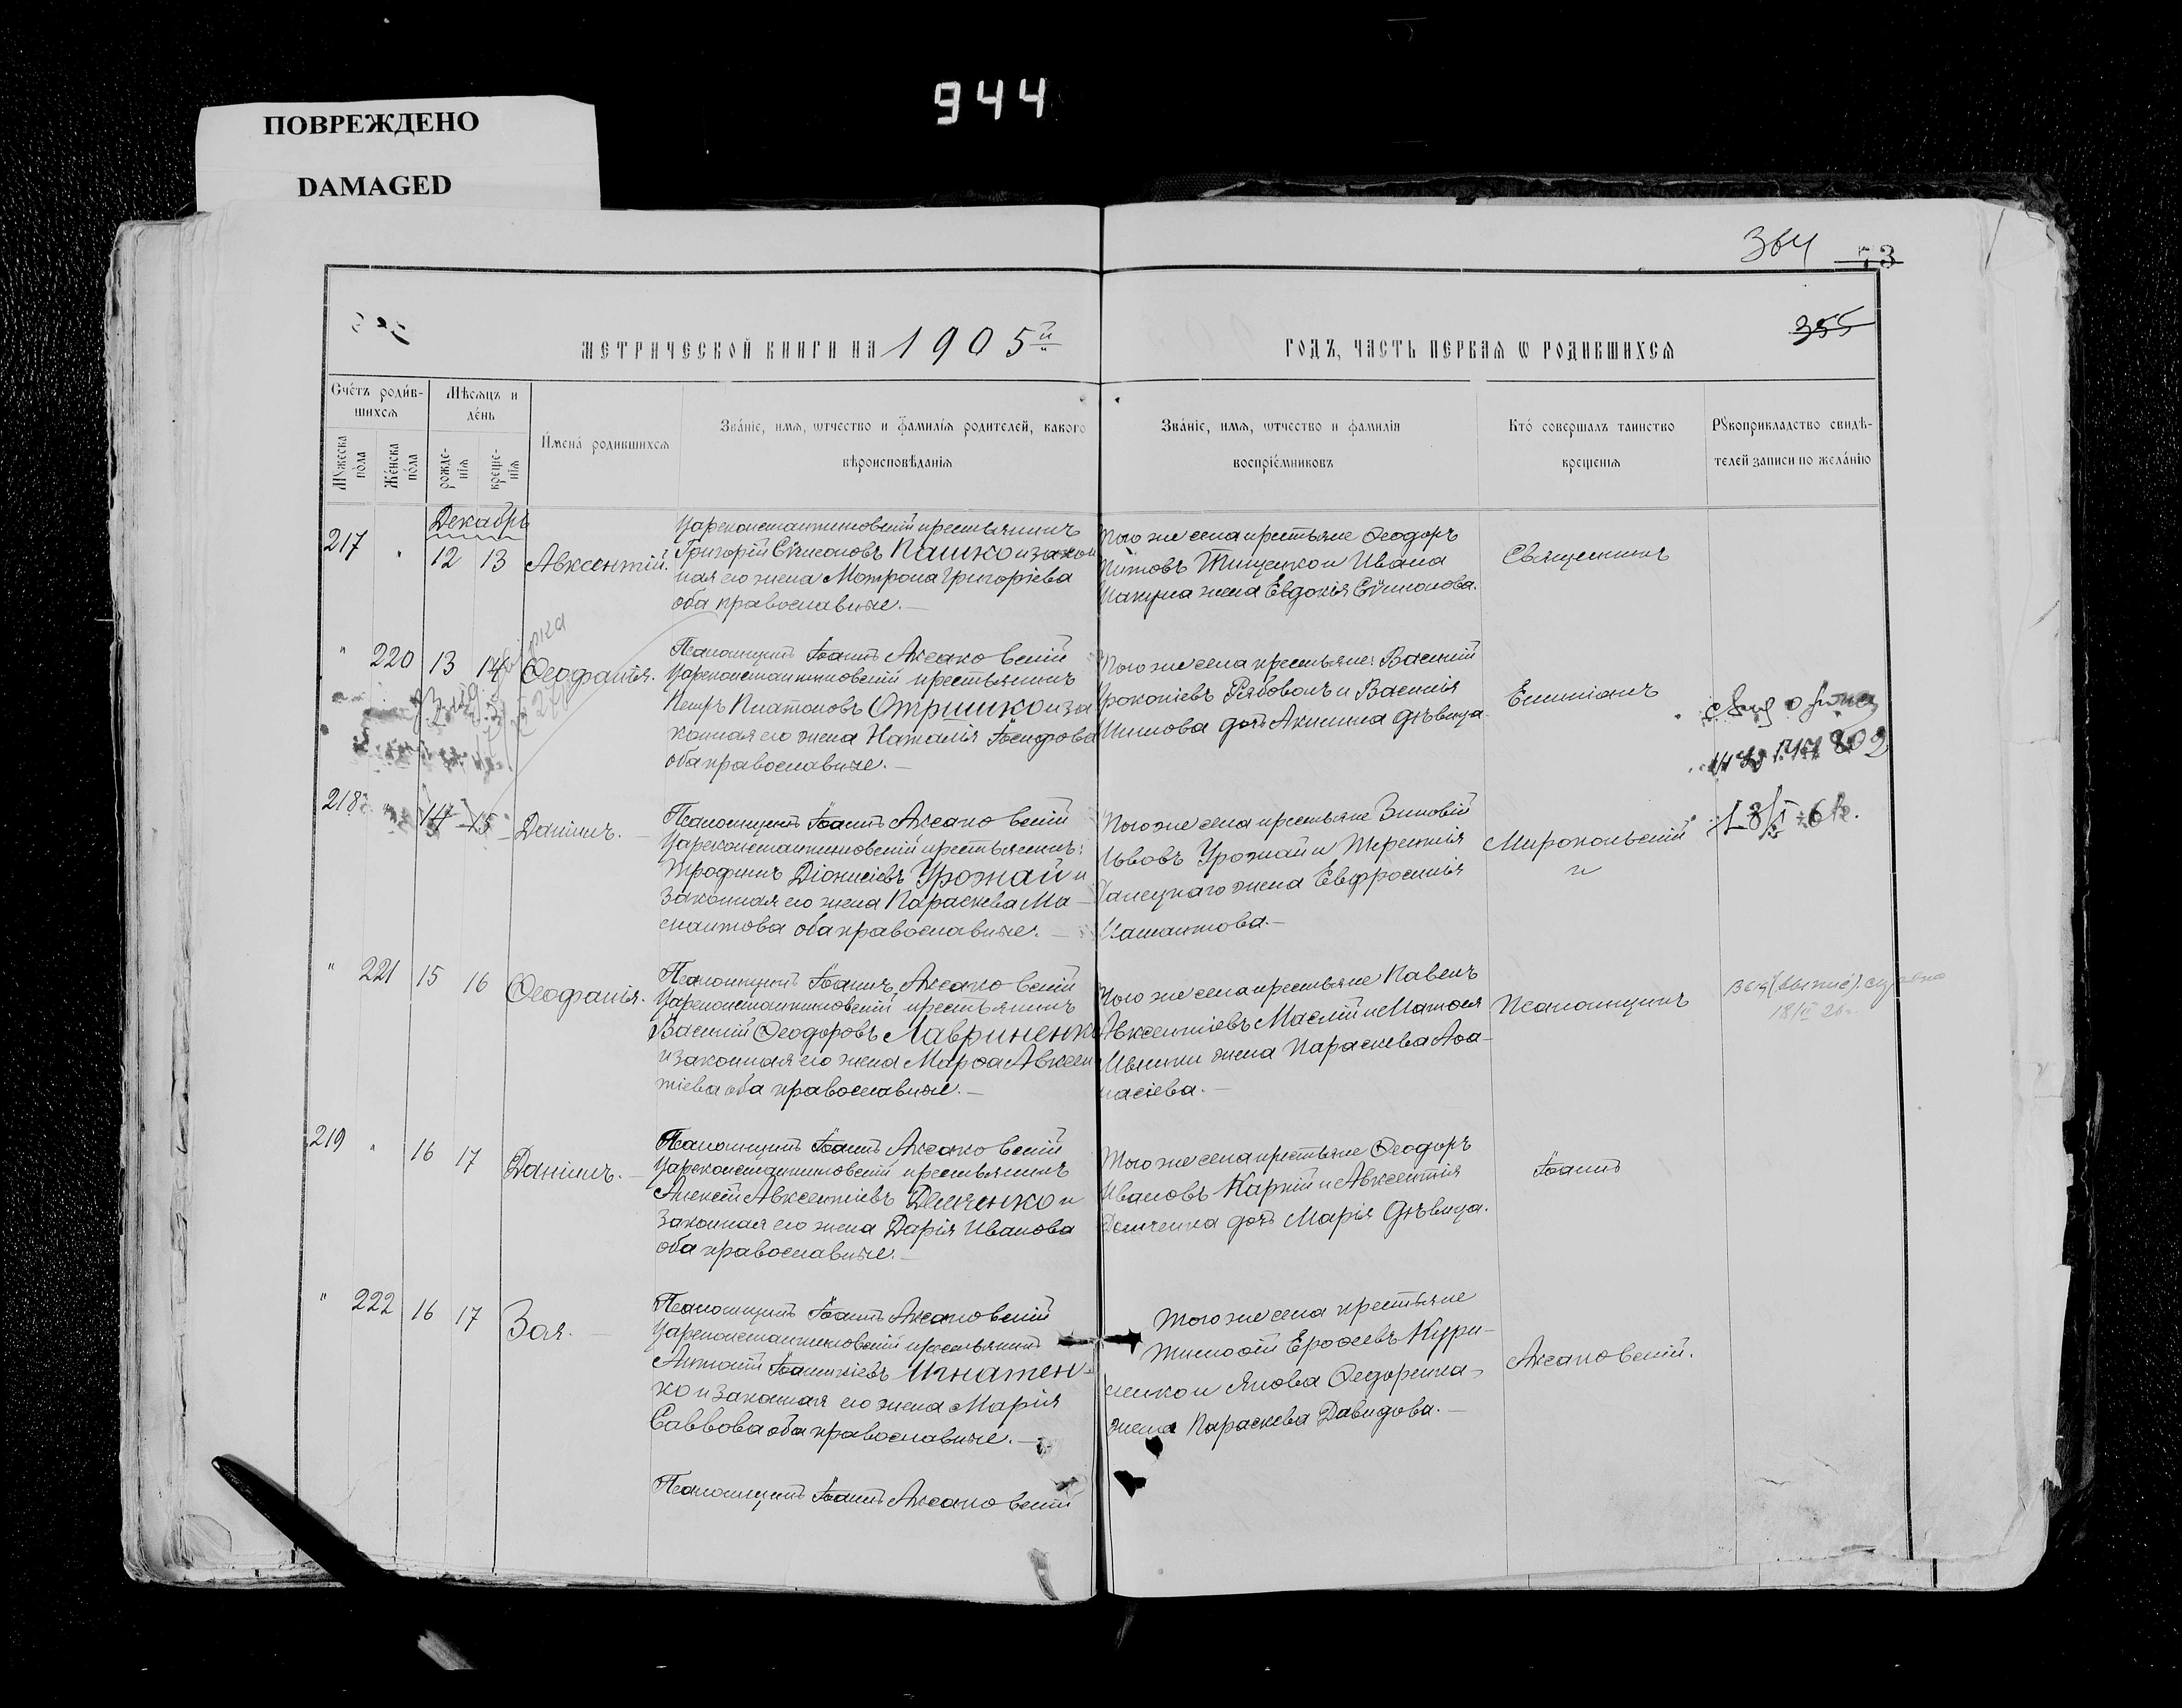 944
ПОВРЕЖДЕНО
DAMAGED
364 73
355
МЕТРИЧЕСКОЙ КНИГИ НА 1905й
ГОДЪ, ЧАСТЬ ПЕРВАЯ Ѡ РОДИВШИХСѦ
Счéтъ роди́в-
шихсѧ
Мѣсѧцъ и
дéнь
Мꙋжеска
пóла
Жéнска
пóла
рожде-
нїѧ
креще-
нїѧ
И҆мена̀ родившихсѧ
Звáнїе, имѧ, ѿтчество и фамилїѧ родителей, какогѡ
вѣроисповѣданїѧ
Звáнїе, имѧ, ѿтчество и фамилїѧ
воспрїéмниковъ
Ктó совершалъ таинство
крещенїѧ
Рꙋкоприкладство свидѣ-
телей записи по желáнїю
Декабрь
217 " 12 13 Авксентій.
Цареконстантиновскій крестьянинъ
Григорій Сѷмеоновъ Пашко и закон
ная его жена Мотрона Григоріева
оба православные.—
того же села крестьяне Ѳеодоръ
Титовъ Тищенко и Ивана
жена Евдокія Сѷмеонова.
Священникъ
" 220 13 14 Ѳеофанія.
Псаломщикъ Іоаннъ Аксаковскій
Цареконстантиновскій крестьянинъ
Петръ Платоновъ Отришко и за
конная его жена Наталія Іосифова
оба православные.—
того же села крестьяне: Василій
Прокопіевъ Рябоволъ и Василія
дочь Акилина дѣвица.
Емиліанъ
218 " 14 15 Даніилъ.
Псаломщикъ Іоаннъ Аксаковскій
Цареконстантиновскій крестьянинъ:
Трофимъ Діонисіевъ Урожай и
законная его жена Параскева Ма-
оба православные.—
того же села крестьяне Зиновій
Львовъ Урожай и Терентія
жена Евфросинія
Миропольскій
и
" 221 15 16 Ѳеофанія.
Псаломщикъ Іоаннъ Аксаковскій
Цареконстантиновскій крестьянинъ
Василій Ѳеодоровъ Лавриненко
и законная его жена Марѳа Авксен
тіева оба православные.—
того же села крестьяне Павелъ
Авксентіевъ Маслій и Матѳея
жена Параскева Аѳа-
насіева.—
Псаломщикъ
219 " 16 17 Даніилъ.—
Псаломщикъ Іоаннъ Аксаковскій
Цареконстантиновскій крестьянинъ
Алексій Авксентіевъ Демченко и
законная его жена Дарія Иванова
оба православные.—
Того же села крестьяне Ѳеодоръ
Ивановъ Карпій и Авксентія
Демченка дочь Марія дѣвица.
Іоаннъ
" 222 16 17 Зоя.—
Псаломщикъ Іоаннъ Аксаковскій
Цареконстантиновскій крестьянинъ
Антоній Іоанникіевъ Игнатен-
ко и законная его жена Марія
Саввова оба православные.—
Того же села крестьяне
Тимоѳей Ероѳеевъ Кури-
ленко и Якова Ѳедоренка
жена Параскева Давидова.—
Аксаковскій.
Псаломщикъ Іоаннъ Аксаковскій